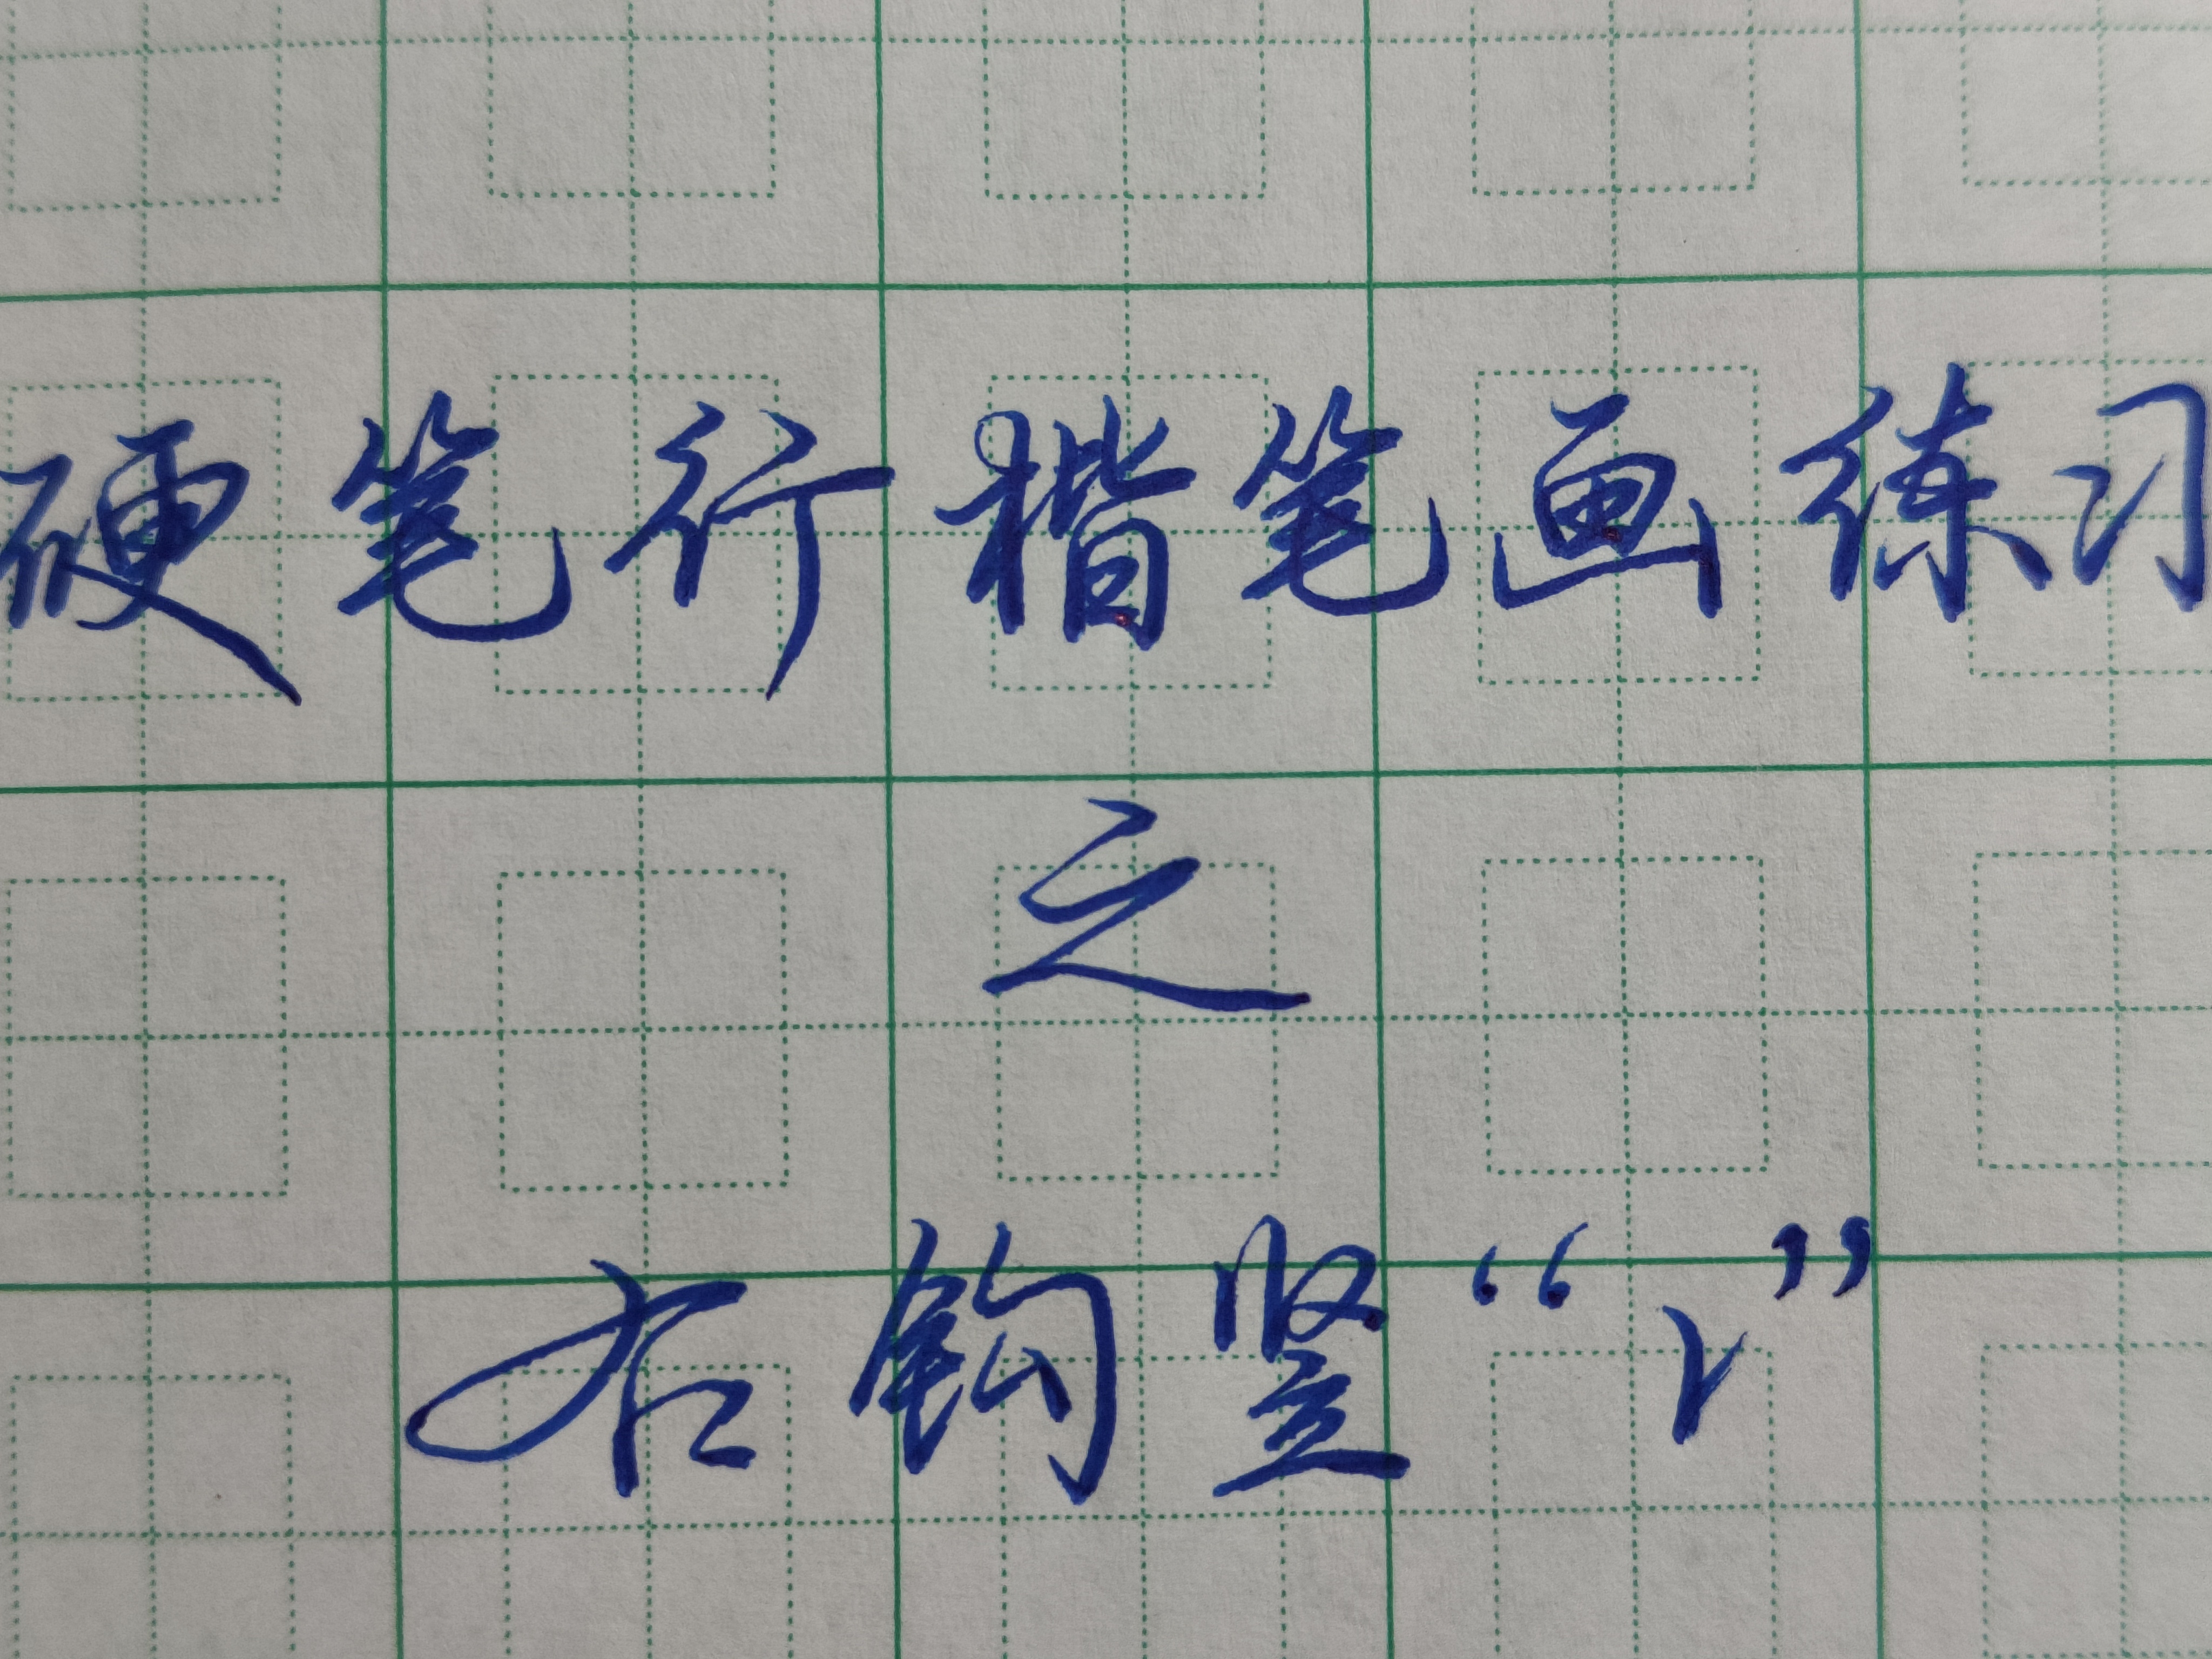 硬笔行楷笔画练习
之
右钩竖“㇙”